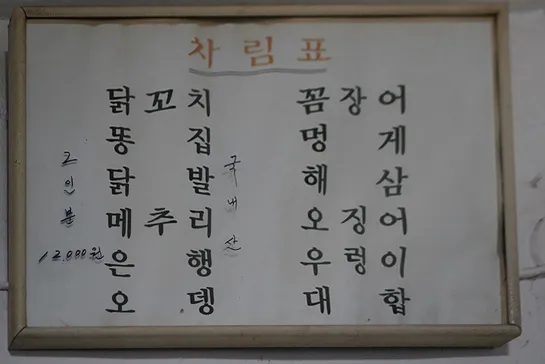 차림표
닭꼬치
똥집
닭발
메추리
은행
오뎅
국내산
2인분
12,000원
꼼장어
멍게
해삼
오징어
우렁이
대합